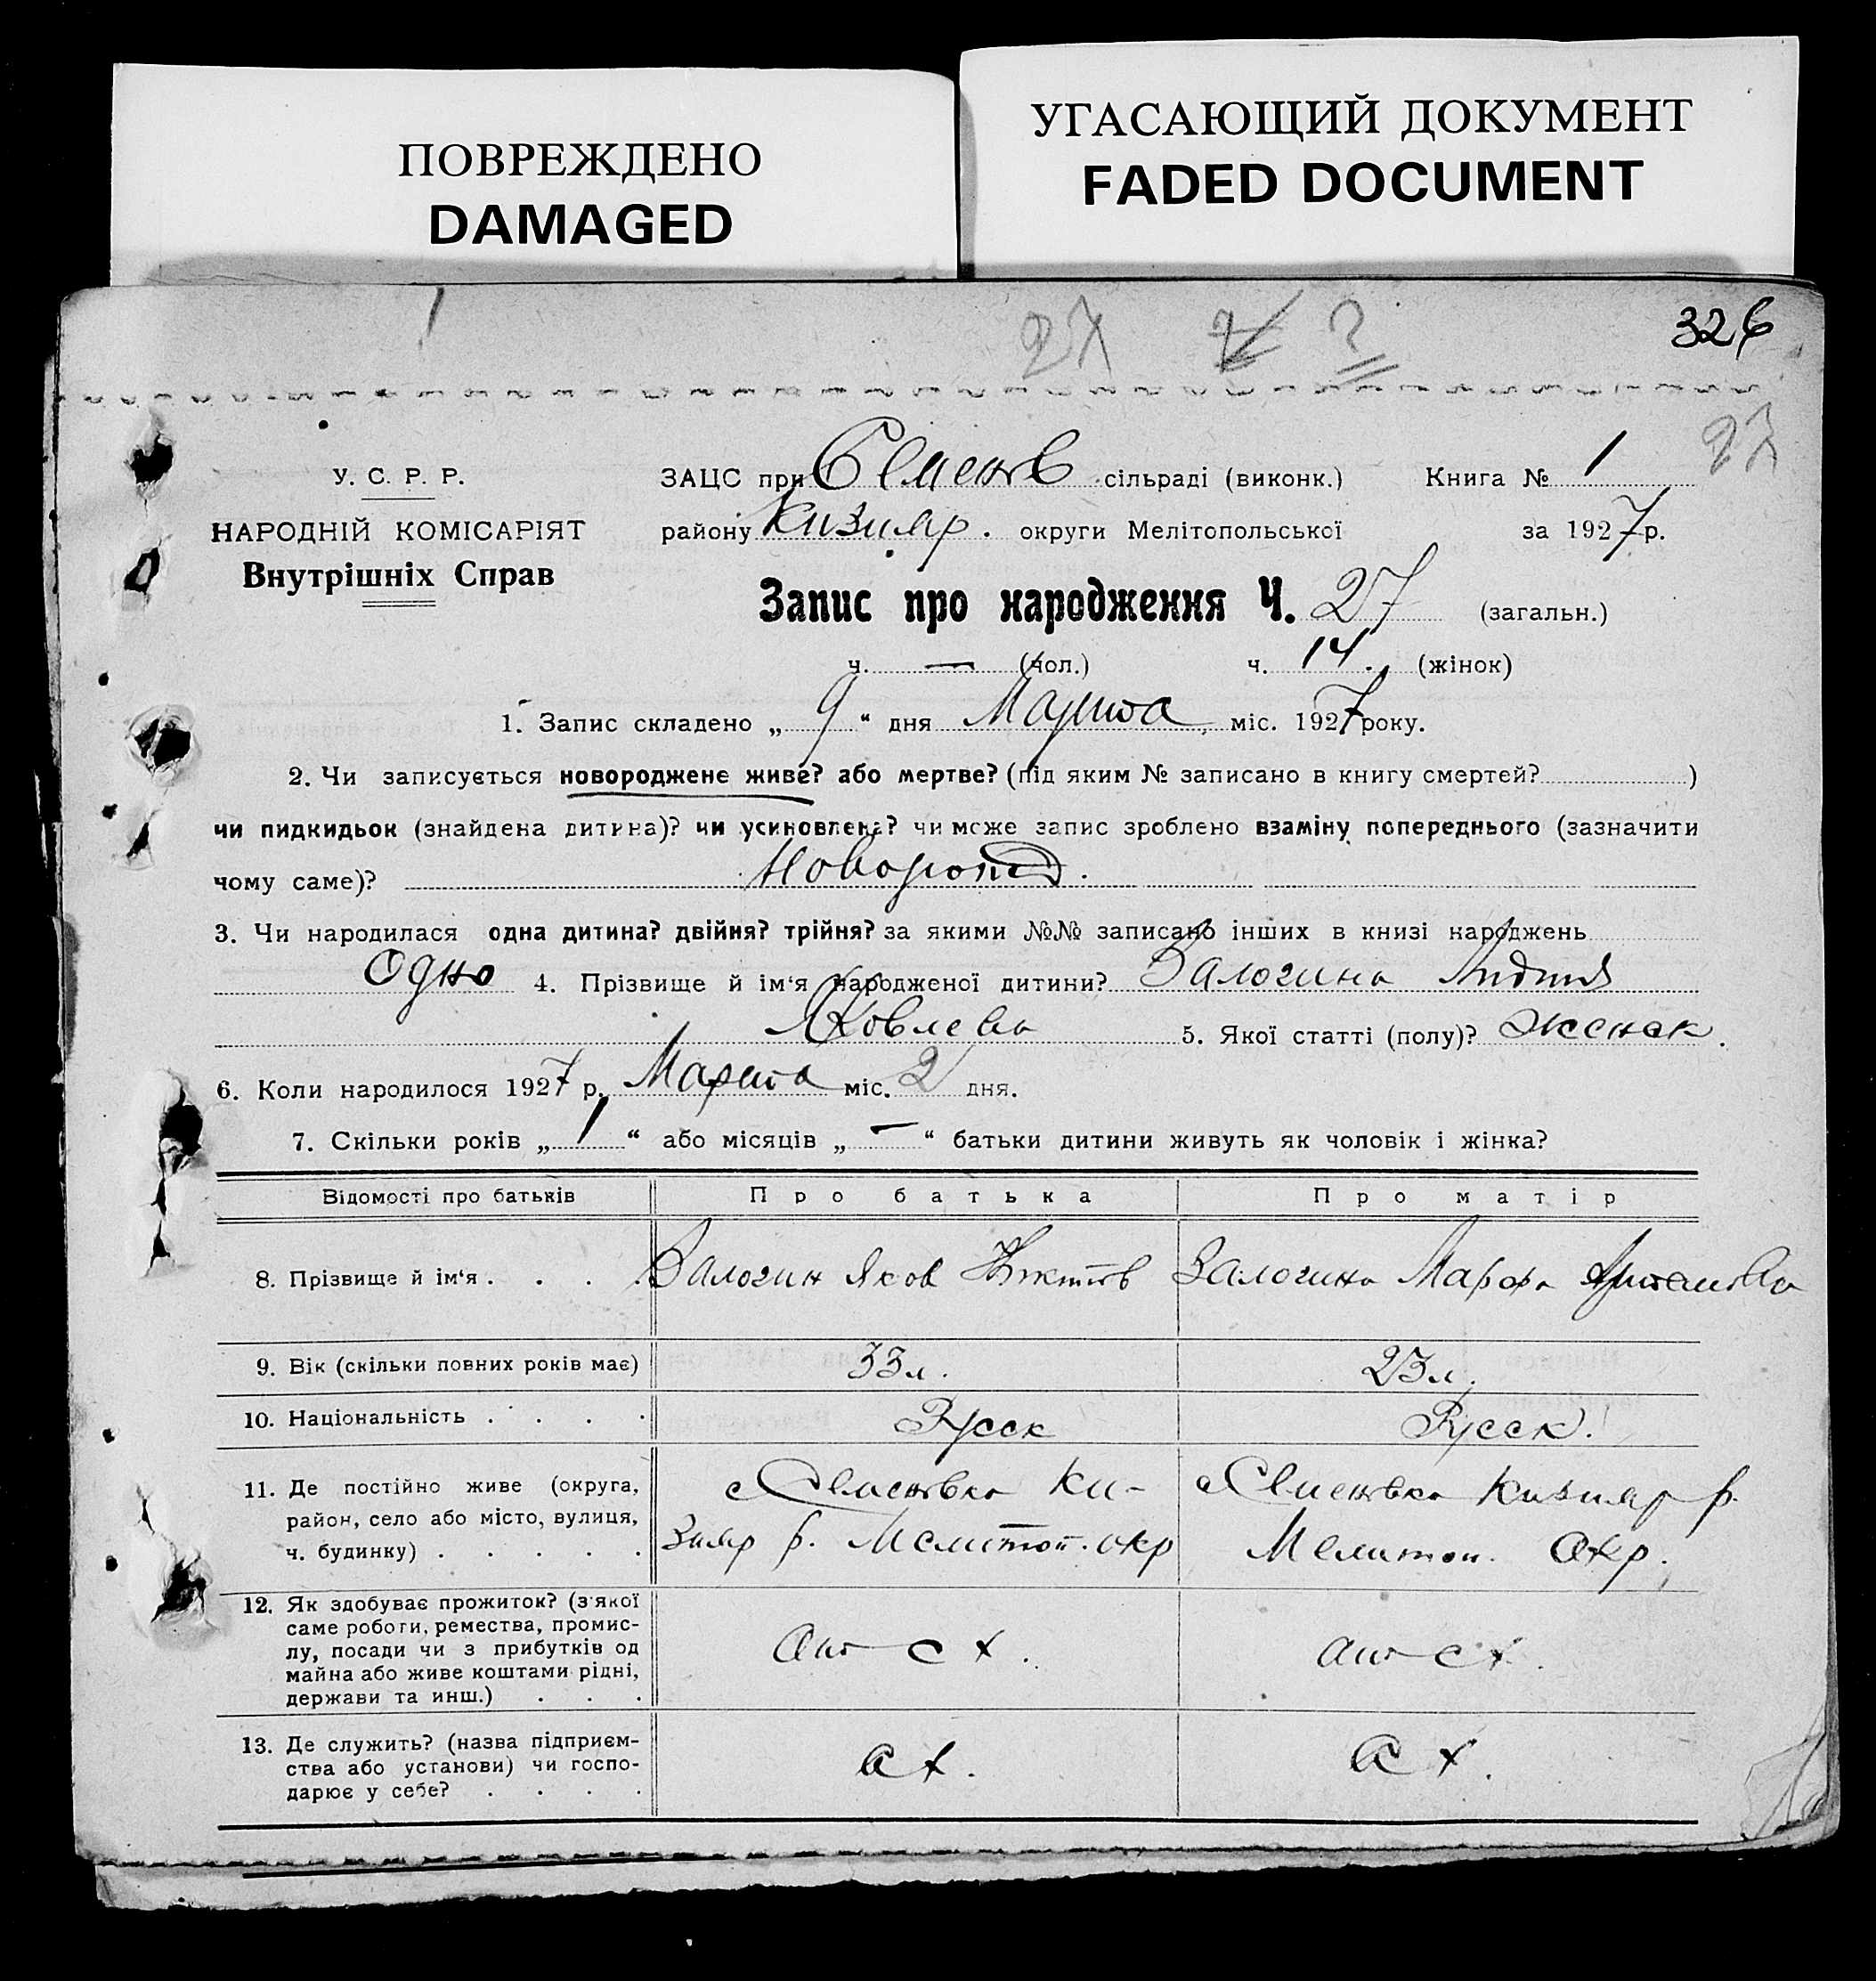 ПОВРЕЖДЕНО
DAMAGED
УГАСАЮЩИЙ ДОКУМЕНТ
FADED DOCUMENT
27 ?
326
27
У. С. Р. Р.
НАРОДНІЙ КОМІСАРІЯТ
Внутрішніх Справ
ЗАЦС при Семенов сільраді (виконк.) Книга № 1
району Кизияр. округи Мелітопольської за 1927 р.
Запис про народження Ч. 27 (загальн.)
ч. — (чол.) ч. 14. (жінок)
1. Запис складено „ 9 “ дня Марта міс. 1927 року.
2. Чи записується новороджене живе? або мертве? (під яким № записано в книгу смертей? )
чи пидкидьок (знайдена дитина)? чи усиновлена? чи може запис зроблено взаміну попереднього (зазначити
чому саме)? Новорожд.
3. Чи народилася одна дитина? двійня? трійня? за якими №№ записано інших в книзі народжень
Одно 4. Прізвище й ім‘я народженої дитини? Залогина Лидия
Яковлева 5. Якої статті (полу)? женск.
6. Коли народилося 1927 р. Марта міс. 2 дня.
7. Скільки років „ 1 “ або місяців „ — “ батьки дитини живуть як чоловік і жінка?
Відомості про батьків Про батька Про матір
8. Прізвище й ім‘я . . . . Залогин Яков Залогина Марфа Артемова
9. Вік (скільки повних років має) 33 л. 23 л.
10. Національність . . . . Русск Русск.
11. Де постійно живе (округа,
район, село або місто, вулиця,
ч. будинку) . . . . .
с Семеновка Ки-
зияр р. Мелитоп. окр
с Семеновка Кизияр р.
Мелитоп. окр.
12. Як здобуває прожиток? (з'якої
саме роботи, ремества, промис-
лу, посади чи з прибутків од
майна або живе коштами рідні,
держави та инш.) . . .
от с х. от с х.
13. Де служить? (назва підприєм-
ства або установи) чи госпо-
дарює у себе? . . . .
с х. с х.